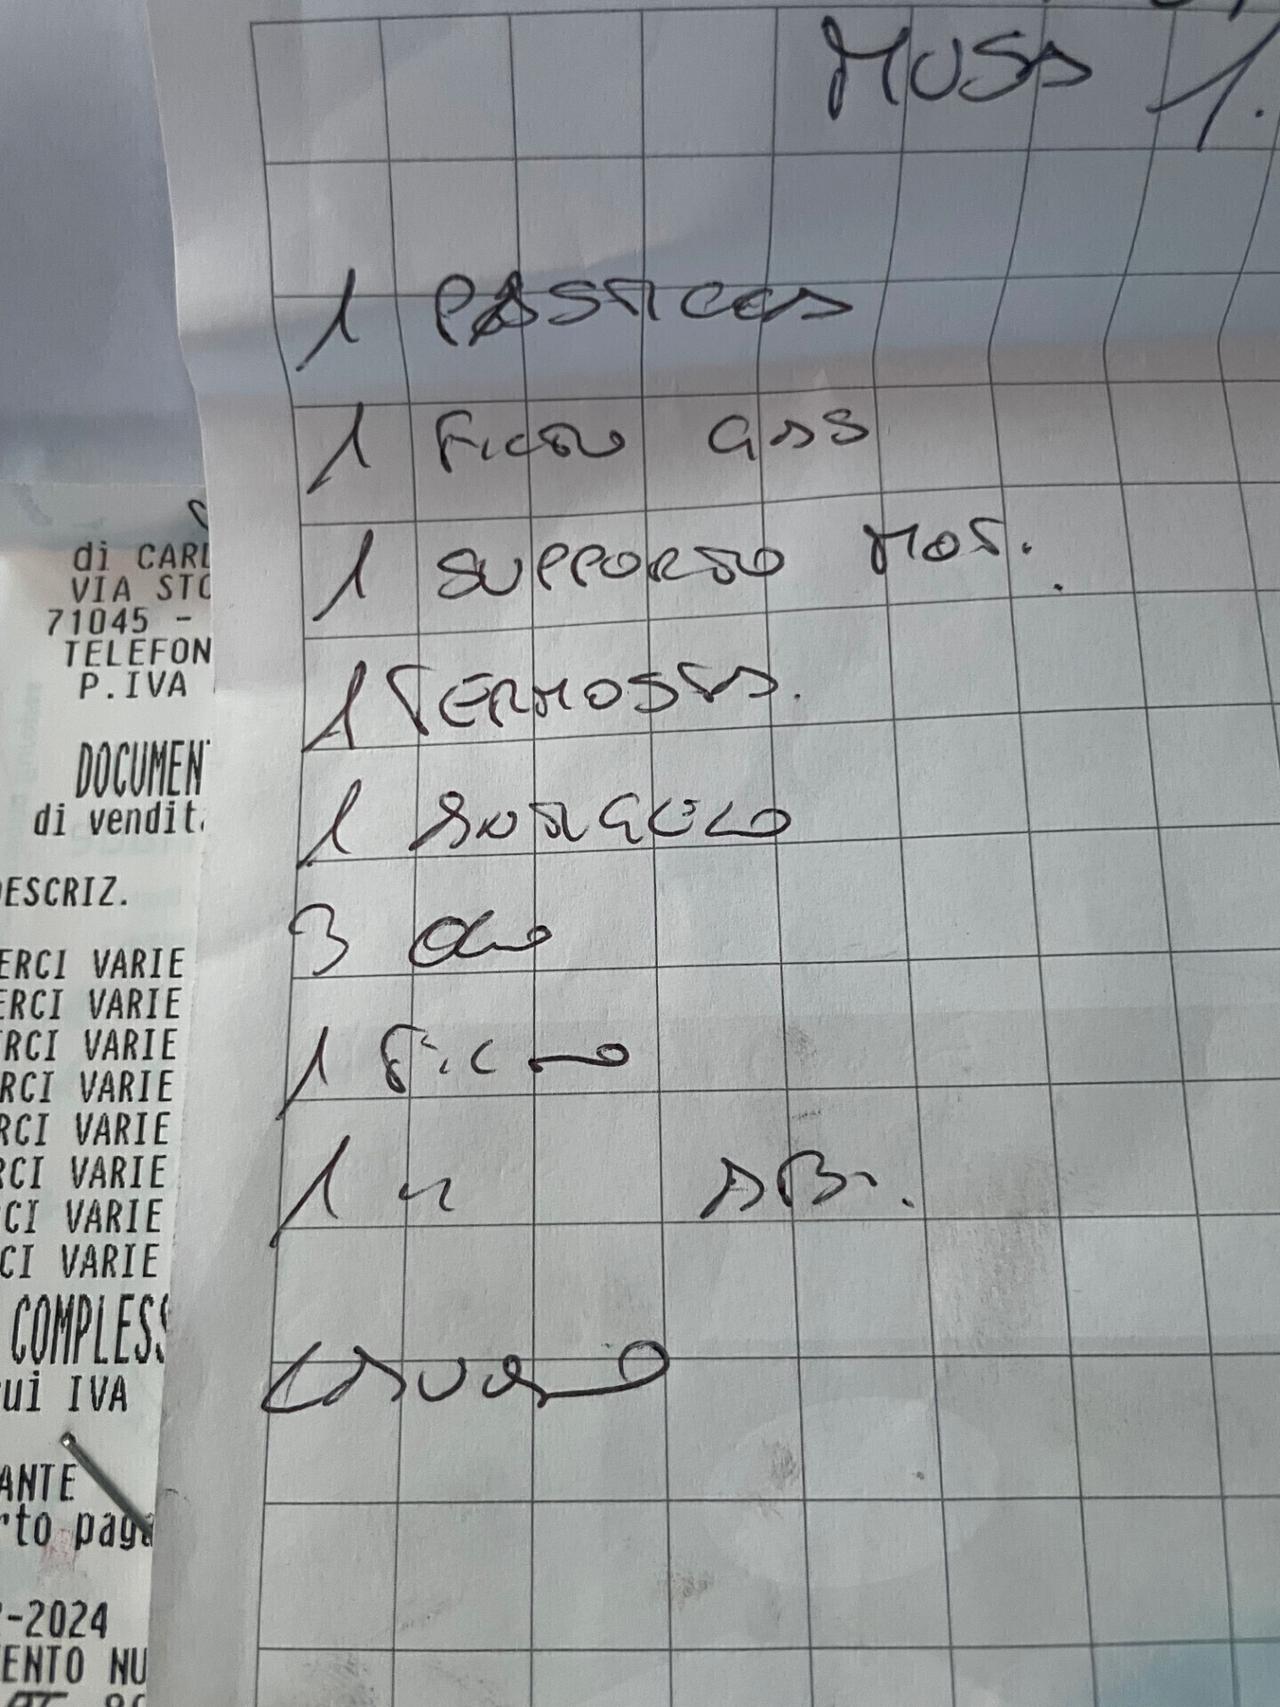 MUSA 1.
1 PASTICCA
1 FILTRO GAS
1 SUPPORTO MOT.
1 TERMOSTA.
1 ANTIGELO
3 Olio
1 Filtro
1 " ABI.
di CARL
VIA STO
71045 -
TELEFON
P.IVA
DOCUMENT
di vendit
DESCRIZ.
ERCI VARIE
ERCI VARIE
ERCI VARIE
RCI VARIE
RCI VARIE
RCI VARIE
CI VARIE
CI VARIE
COMPLESS
ui IVA
ANTE
rto paga
-2024
ENTO NU